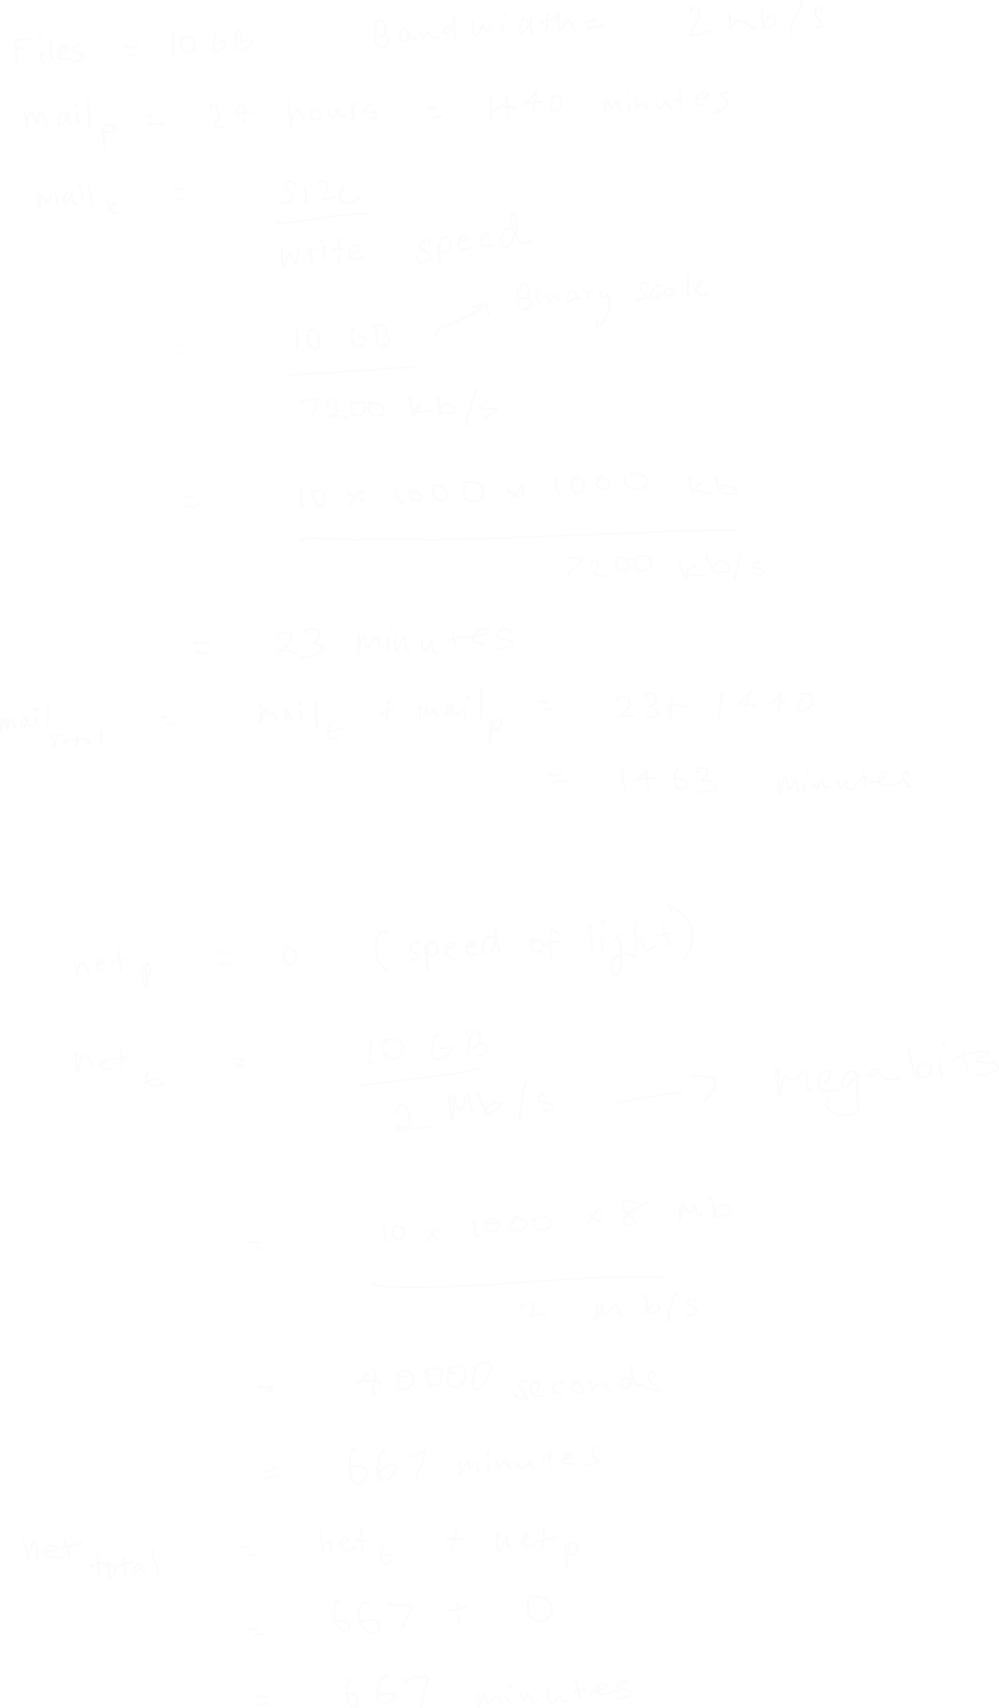 Files = 10 GB Bandwidth = 2 mb/s
mail p = 24 hours = 1440 minutes
mail t = size
write speed
= 10 GB → Binary scale
7200 kb/s
= 10 x 1000 x 1000 kb
7200 kb/s
= 23 minutes
mail total = mail t + mail p = 23 + 1440
= 1463 minutes
net p = 0 (speed of light)
net t = 10 GB
2 Mb/s → Megabits
= 10 x 1000 x 8 Mb
2 mb/s
= 40000 seconds
= 667 minutes
net total = net t + net p
= 667 + 0
= 667 minutes